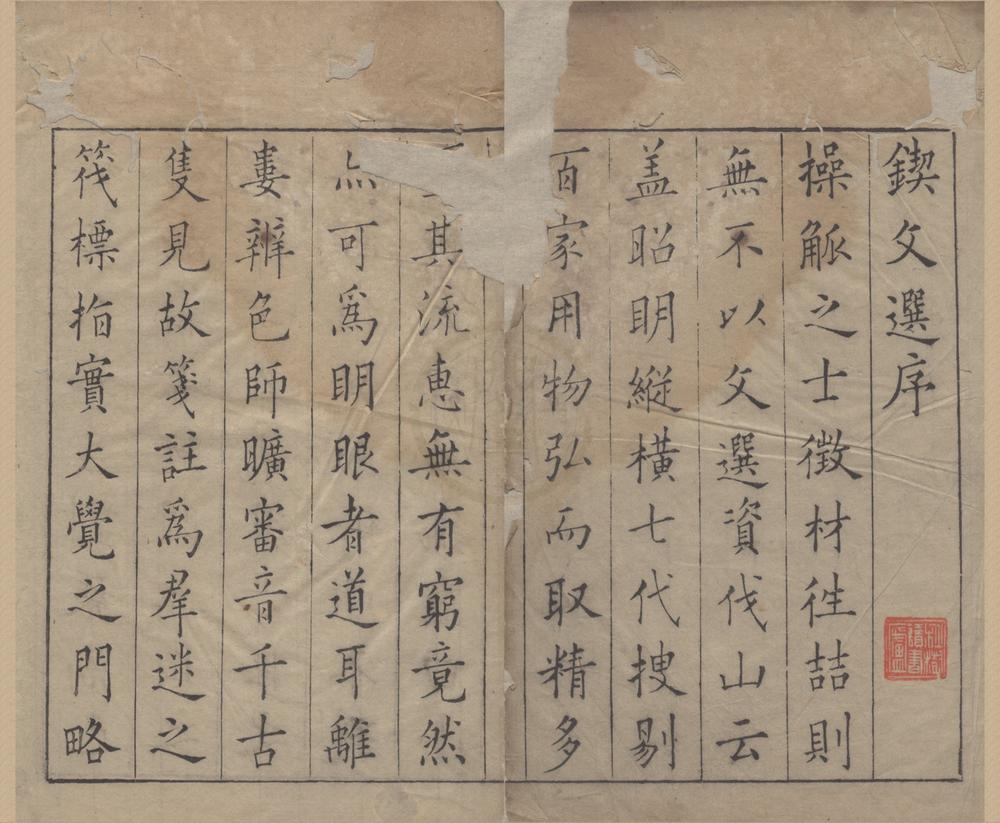 鍥文選序
操觚之士徵材徃詰則
無不以文選資伐山云
盖昭眀縱橫七代捜剔
百家用物弘而取精多
其流恵無有窮竟然
可爲眀眼者道耳離
婁辨色師曠審音千古
隻見故箋註爲羣迷之
筏標指實大覺之門略